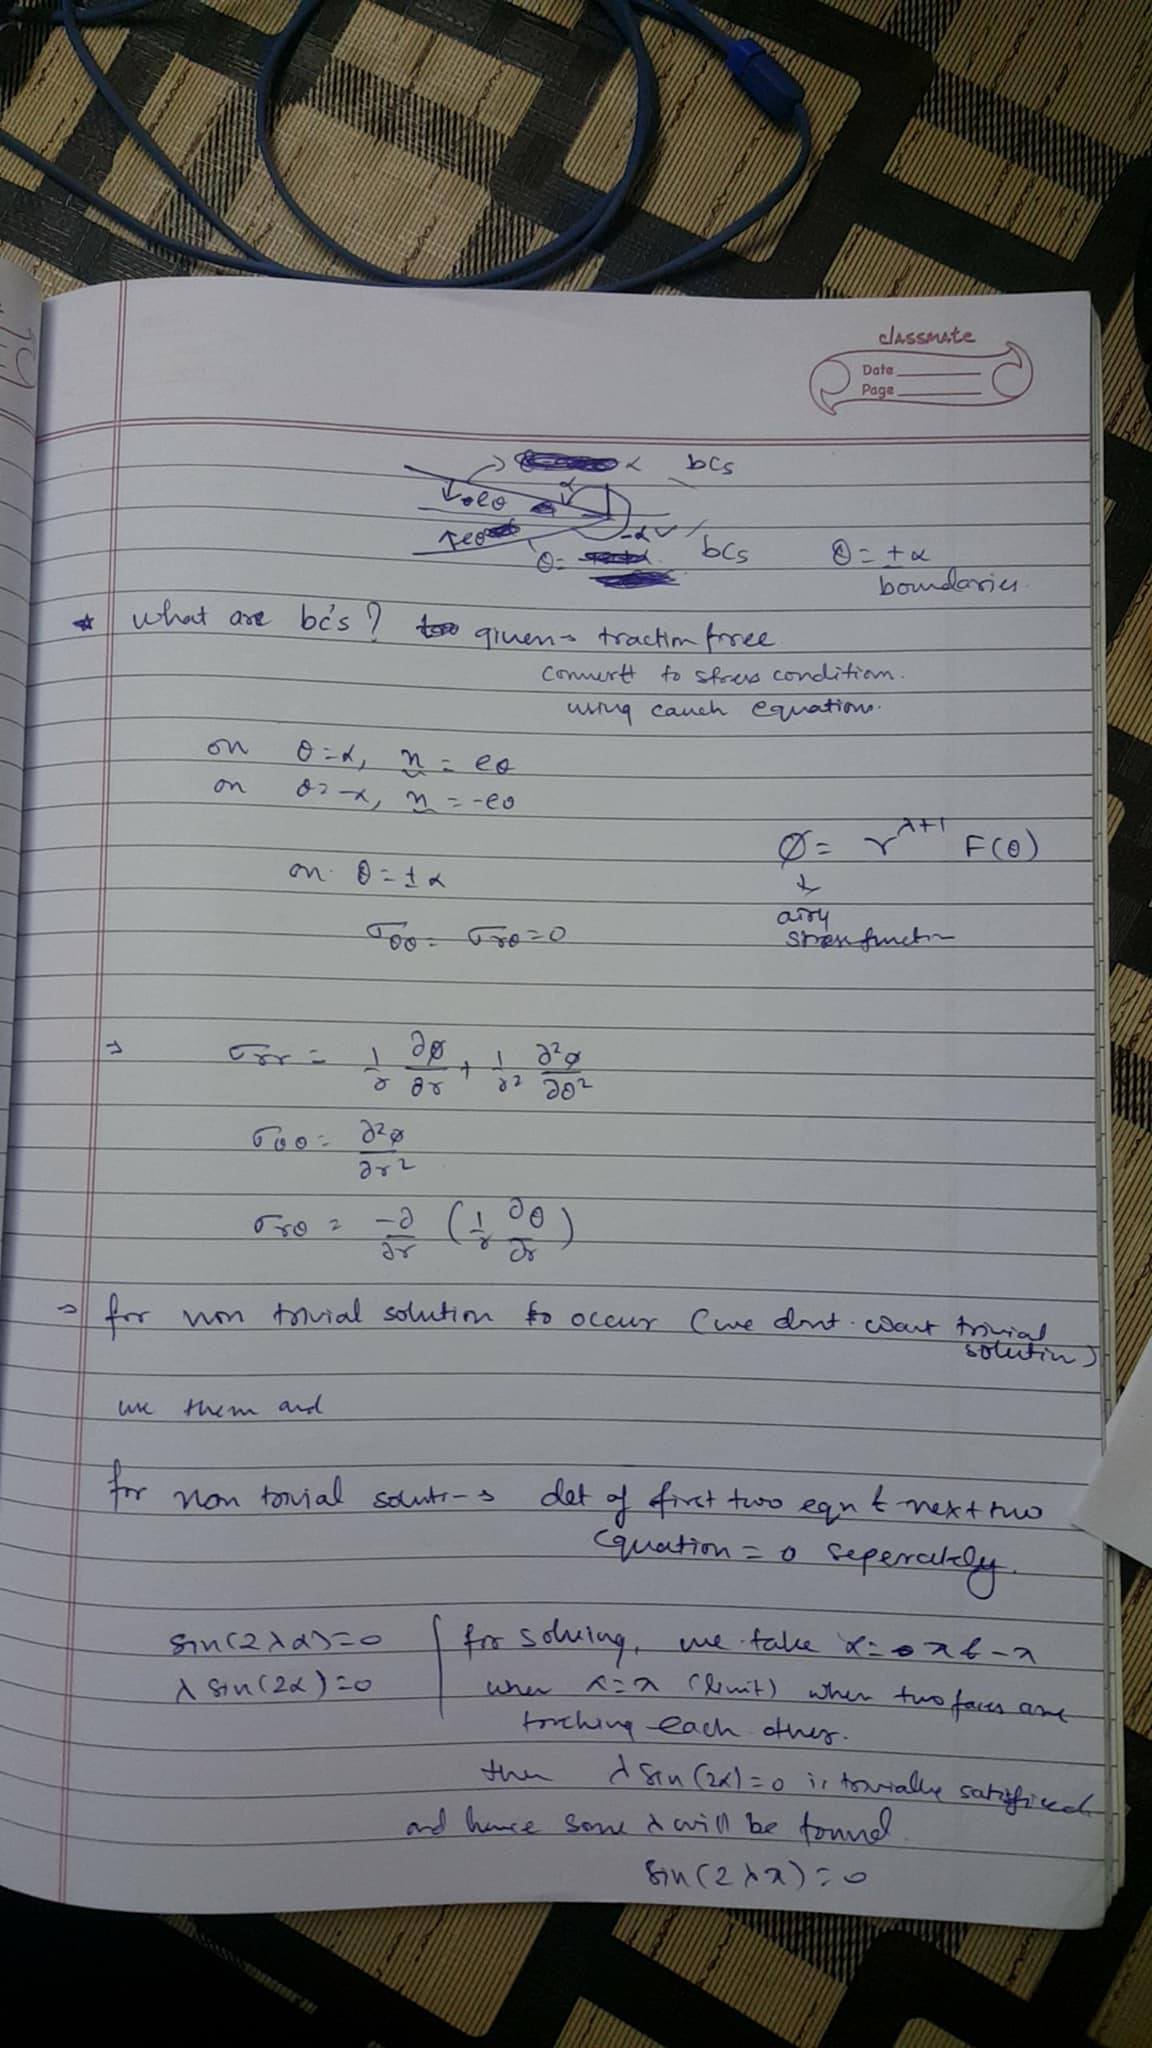 classmate
Date
Page
α bcs
α
eθ
-α
θ= bcs θ = ± α
boundaries.
* what are bc's? given → traction free.
convert to stress condition.
using cauch equations.
on θ=α, n = eθ
on θ=-α, n = -eθ
∅ = r^λ+1 F(θ)
on θ = ± α
airy
stress function
σθθ = σrθ = 0
⇒ σrr = 1/r ∂∅/∂r + 1/r² ∂²∅/∂θ²
σθθ = ∂²∅/∂r²
σrθ = -∂/∂r (1/r ∂θ/∂r)
⇒ for non trivial solution to occur (we dont want trivial
solution)
use them and
for non trivial solut → det of first two eqn & next two
equation = 0 seperately.
sin(2λα)=0 for solving, we take α = π & -π
λ sin(2α)=0 when α=π (limit) when two faces are
touching each other.
then λ sin(2α)=0 is trivially satisfied
and hence some λ will be found.
sin(2λπ)=0